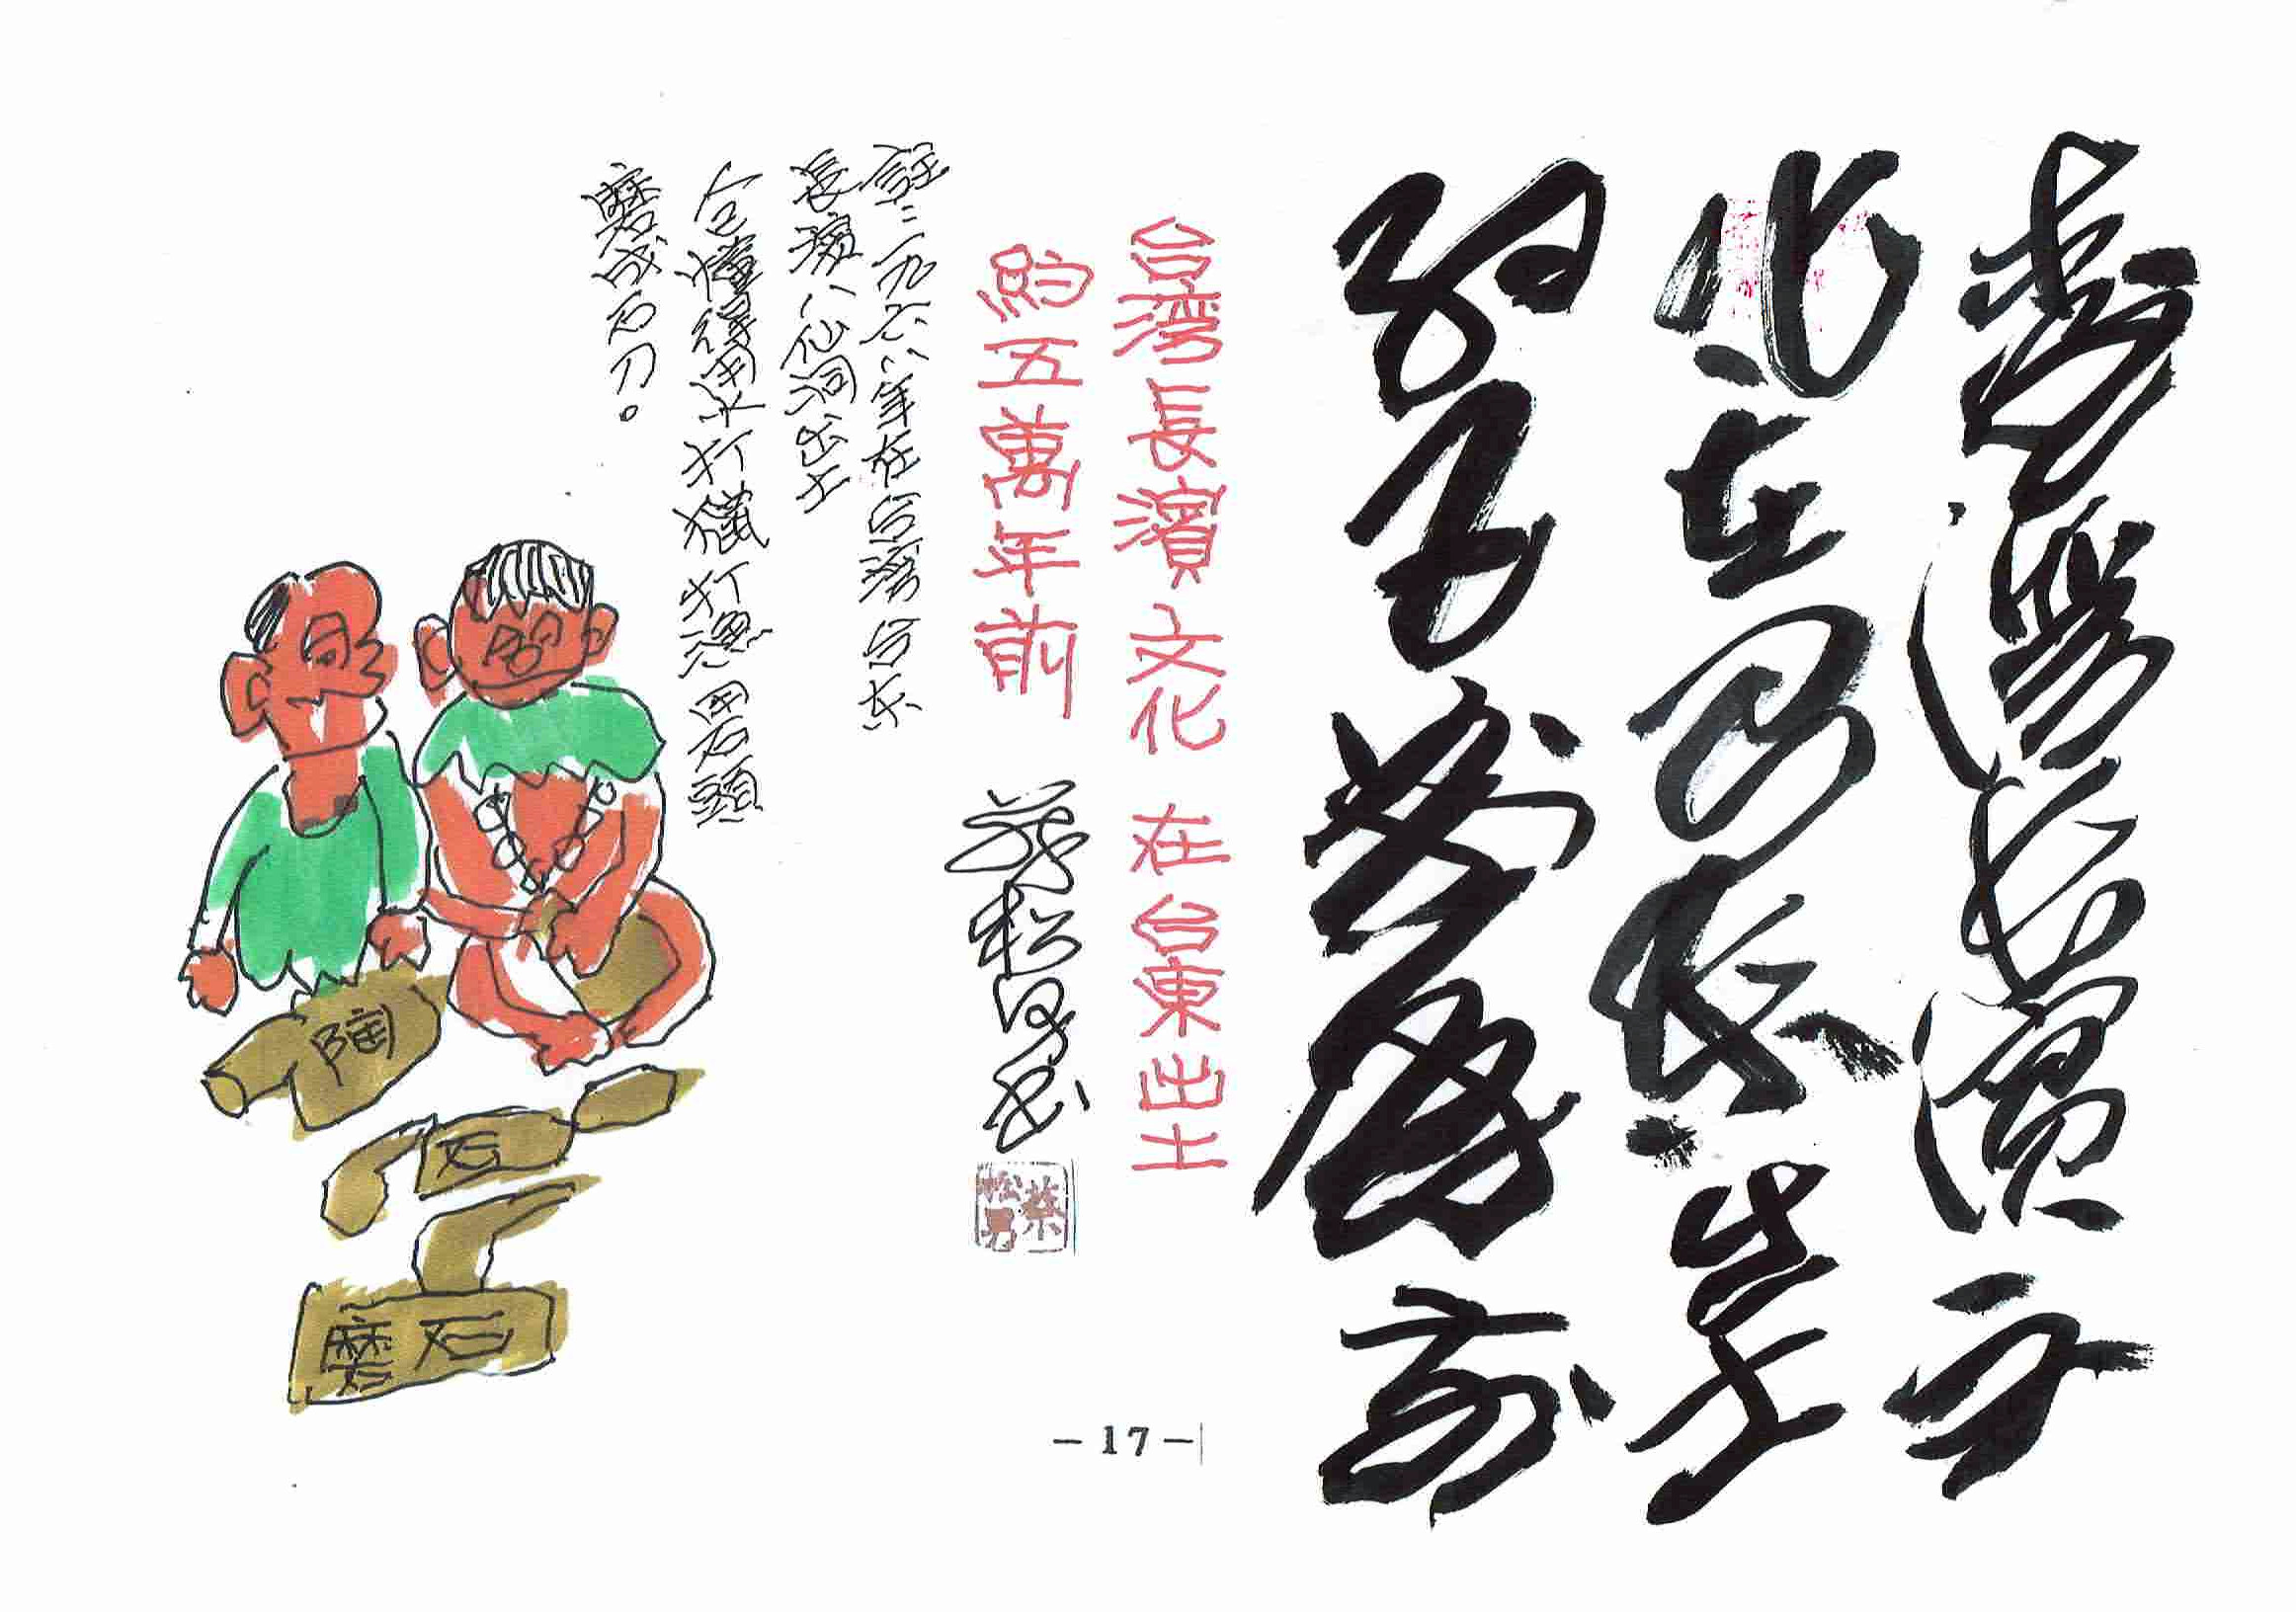 臺灣長濱文
化在台東出土
約五萬年前
台湾長濱文化 在台東出土
約五萬年前 蔡松男书
蔡松男
註:一九六八年在台灣台东
長濱八仙洞出土
懂得用來打獵打漁用石頭
磨成石刀。
陶
石
磨石
-17-